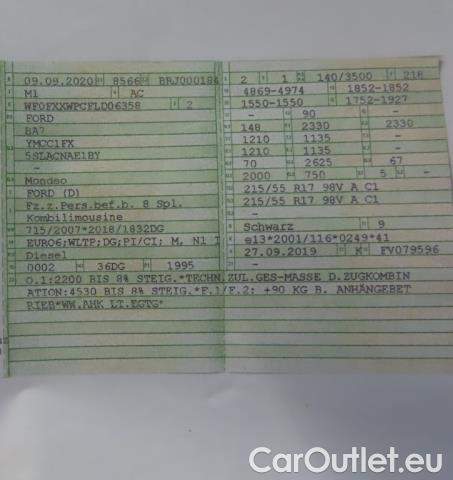 09.09.2020 8566 BRJ000184
M1 AC
WF0FXXWPCFLD06358 2
FORD
BA7
YMCC1FX
5SLACNAE1BY
–
Mondeo
FORD (D)
Fz.z.Pers.bef.b. 8 Spl.
Kombilimousine
715/2007*2018/1832DG
EURO6;WLTP;DG;PI/CI; M, N1 I
Diesel
0002 36DG 1995
2 1 140/3500 218
4869-4974 1852-1852
1550-1550 1752-1927
– 90 –
148 2330 2330
1210 1135 –
1210 1135 –
70 2625 67
2000 750 5 –
215/55 R17 98V A C1
215/55 R17 98V A C1
–
Schwarz 9
e13*2001/116*0249*41
27.09.2019 K FV079596
O.1:2200 BIS 8% STEIG.*TECHN.ZUL.GES-MASSE D.ZUGKOMBIN
ATION:4530 BIS 8% STEIG.*F.1/F.2: +90 KG B. ANHÄNGEBET
RIEB*WW.AHK LT.EGTG*
CarOutlet.eu